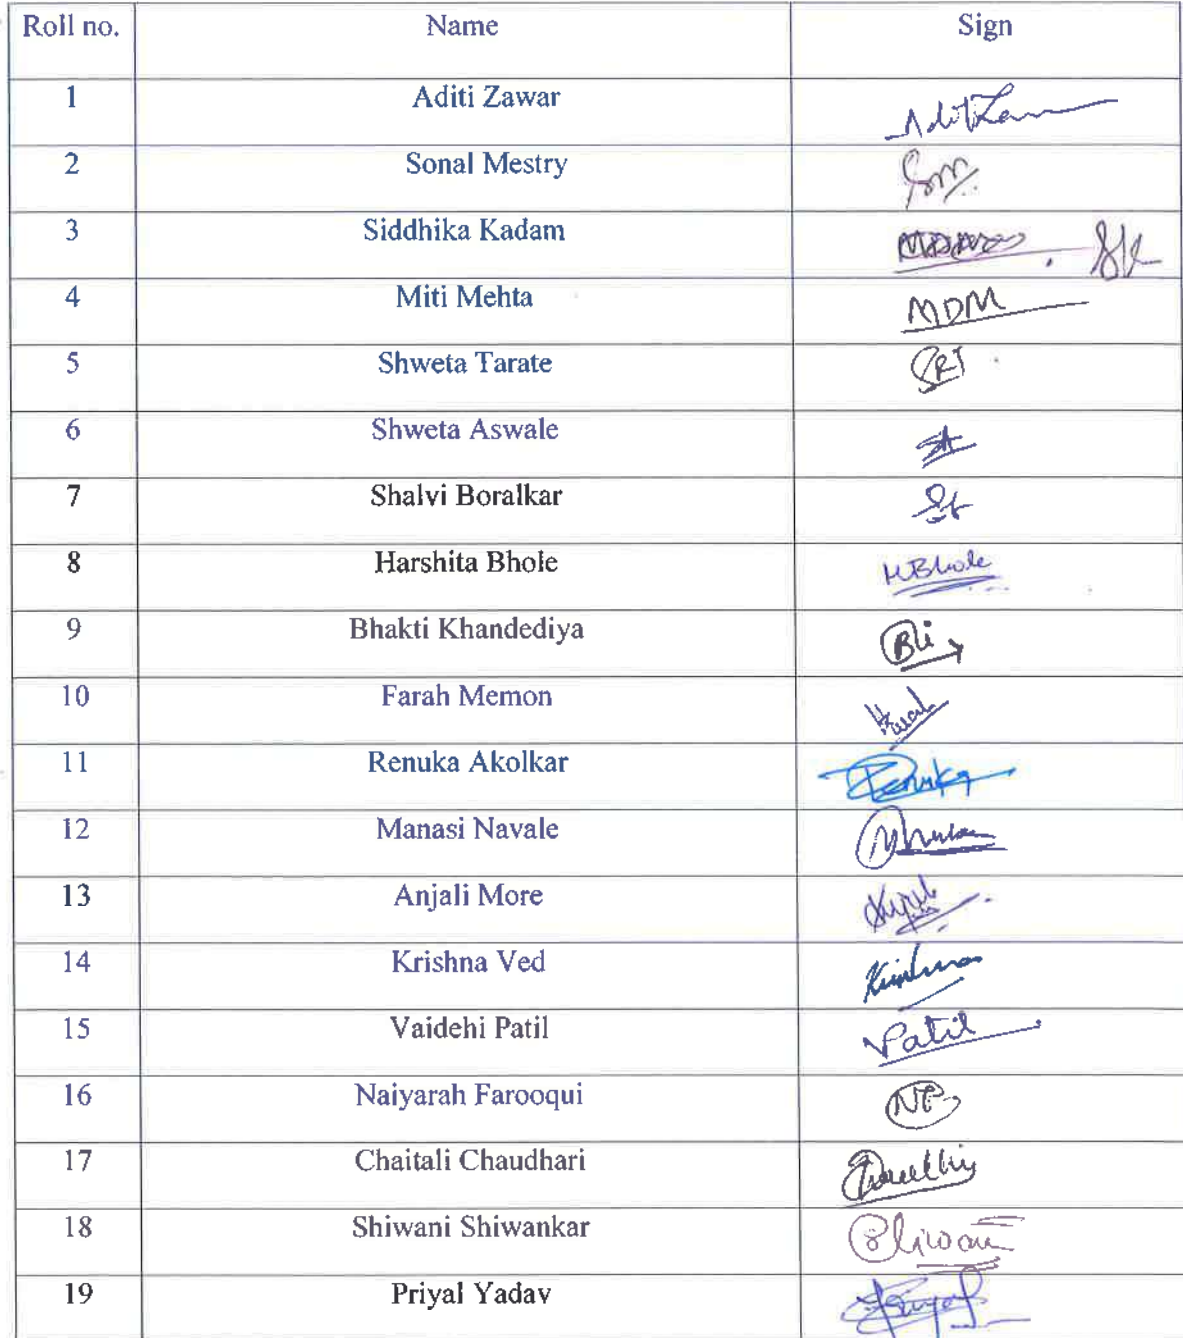 Roll no. Name Sign
1 Aditi Zawar
2 Sonal Mestry Sm
3 Siddhika Kadam SK
4 Miti Mehta MDM
5 Shweta Tarate SRT
6 Shweta Aswale SA
7 Shalvi Boralkar
8 Harshita Bhole HBhole
9 Bhakti Khandediya
10 Farah Memon
11 Renuka Akolkar Renuka
12 Manasi Navale
13 Anjali More
14 Krishna Ved Krishna
15 Vaidehi Patil VPatil
16 Naiyarah Farooqui NF
17 Chaitali Chaudhari
18 Shiwani Shiwankar Shiwani
19 Priyal Yadav